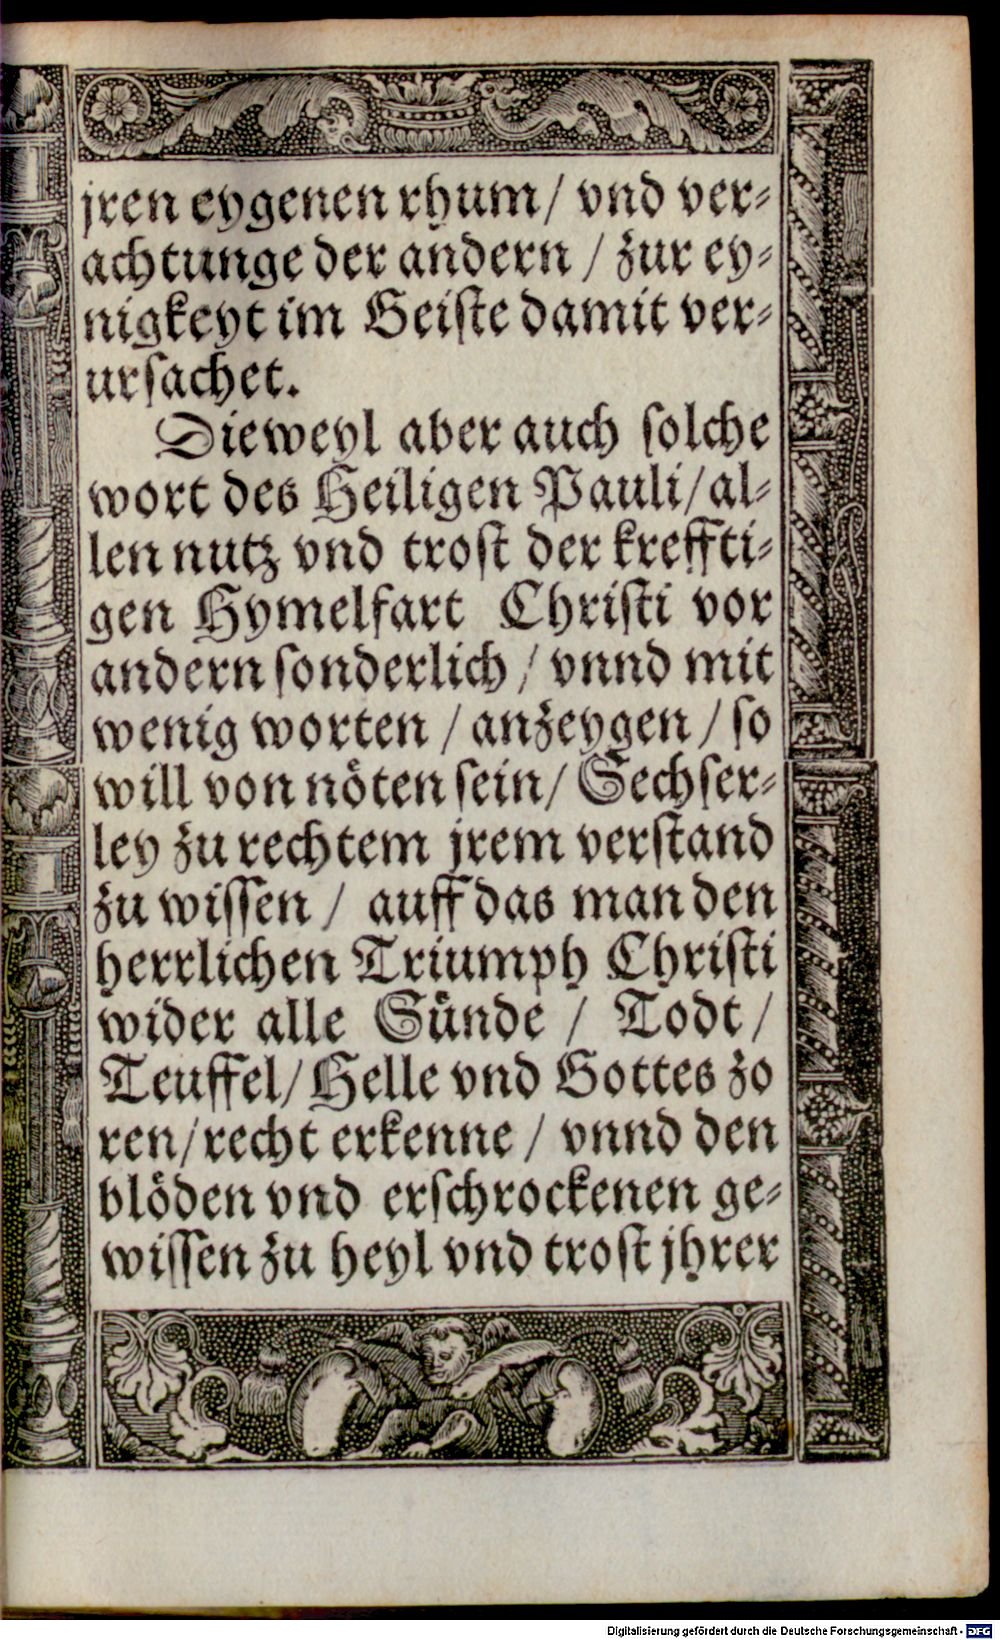 jren eygenen rhum/ vnd ver-
achtunge der andern / zur ey-
nigkeyt im Geiste damit ver-
ursachet.
Dieweyl aber auch solche
wort des Heiligen Pauli/ al-
len nutz vnd trost der kreffti-
gen Hymelfart Christi vor
andern sonderlich / vnnd mit
wenig worten / anzeygen / so
will von nöten sein/ Sechser-
ley zu rechtem jrem verstand
zu wissen / auff das man den
herrlichen Triumph Christi
wider alle Sünde / Todt/
Teuffel/ Helle vnd Gottes zo
ren/ recht erkenne / vnnd den
blöden vnd erschrockenen ge-
wissen zu heyl vnd trost jhrer
Digitalisierung gefördert durch die Deutsche Forschungsgemeinschaft - DFG